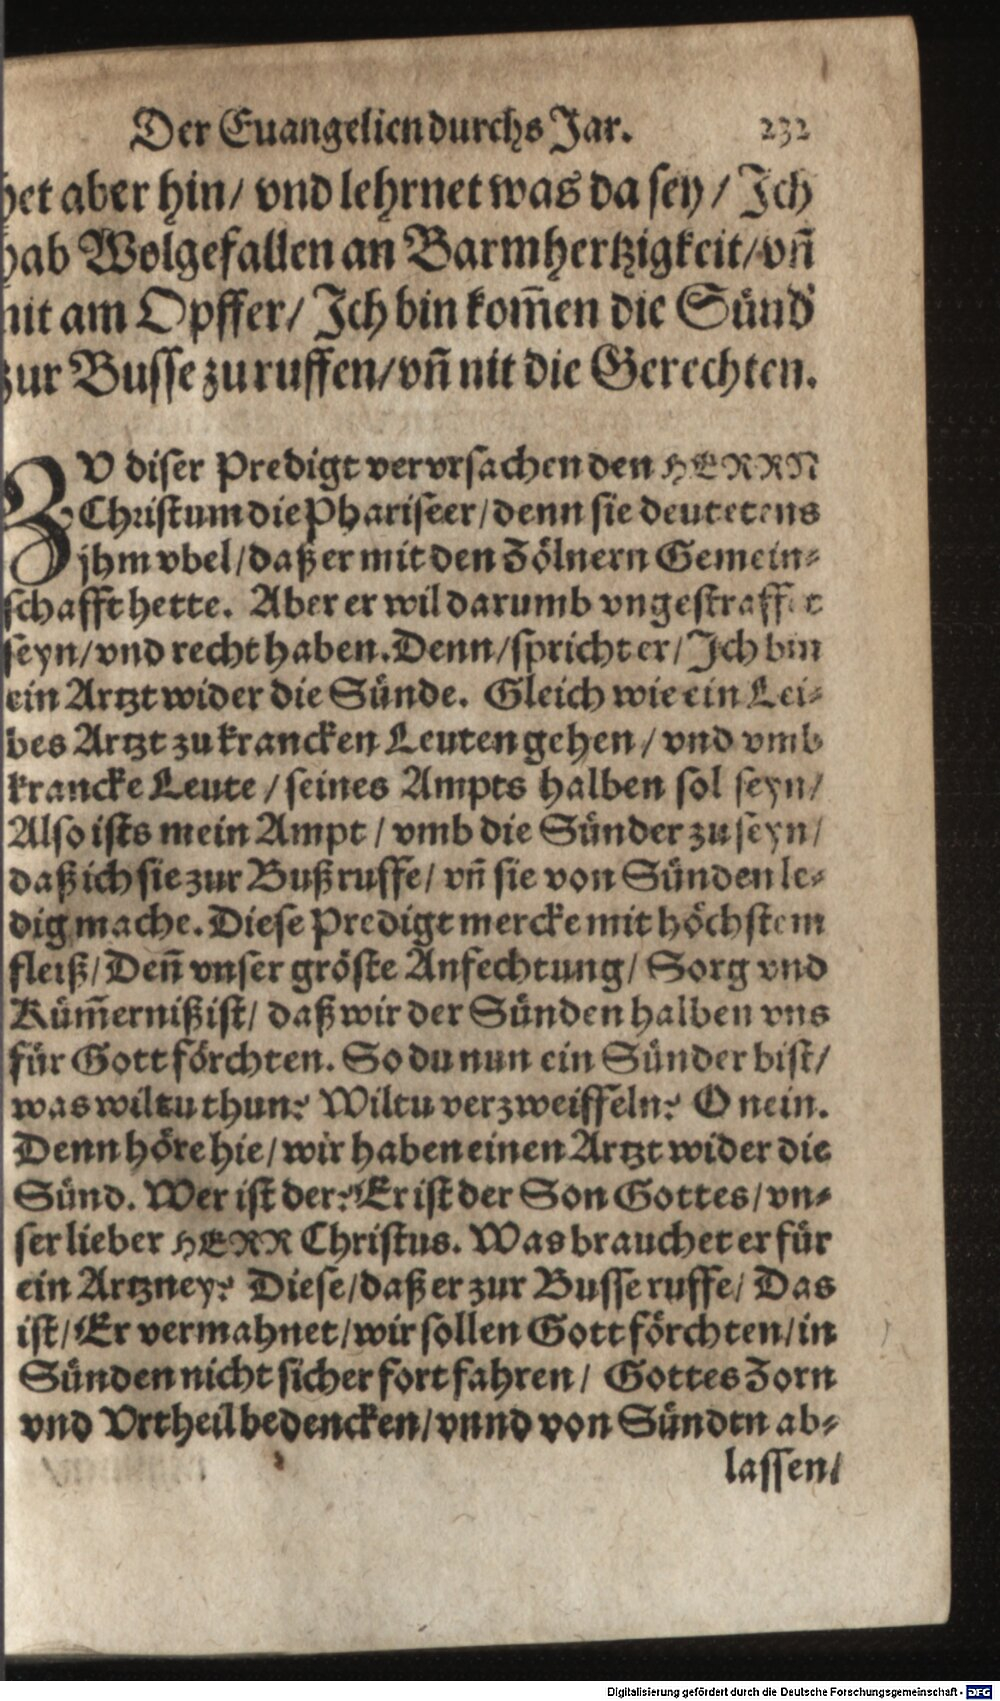 Der Euangelien durchs Jar. 232
het aber hin/ vnd lehrnet was da sey/ Ich
hab Wolgefallen an Barmhertzigkeit/ vn̄
nit am Opffer/ Ich bin kom̄en die Sünd'
zur Busse zu ruffen/ vn̄ nit die Gerechten.
ZV diser Predigt vervrsachen den HERRN
Christum die Phariseer/ denn sie deutetens
jhm vbel/ daß er mit den Zölnern Gemein⸗
schafft hette. Aber er wil darumb vngestraffet
seyn/ vnd recht haben. Denn/ spricht er/ Ich bin
ein Artzt wider die Sünde. Gleich wie ein Lei⸗
bes Artzt zu krancken Leuten gehen/ vnd vmb
krancke Leute/ seines Ampts halben sol seyn/
Also ists mein Ampt/ vmb die Sünder zu seyn/
daß ich sie zur Buß ruffe/ vn̄ sie von Sünden le⸗
dig mache. Diese Predigt mercke mit höchstem
fleiß/ Den̄ vnser gröste Anfechtung/ Sorg vnd
Küm̄erniß ist/ daß wir der Sünden halben vns
für Gott förchten. So du nun ein Sünder bist/
was wiltu thun? Wiltu verzweiffeln? O nein.
Denn höre hie/ wir haben einen Artzt wider die
Sünd. Wer ist der? Er ist der Son Gottes/ vn⸗
ser lieber HERR Christus. Was brauchet er für
ein Artzney? Diese/ daß er zur Busse ruffe/ Das
ist/ Er vermahnet/ wir sollen Gott förchten/ in
Sünden nicht sicher fort fahren/ Gottes Zorn
vnd Vrtheil bedencken/ vnnd von Sünden ab⸗
lassen/
Digitalisierung gefördert durch die Deutsche Forschungsgemeinschaft - DFG